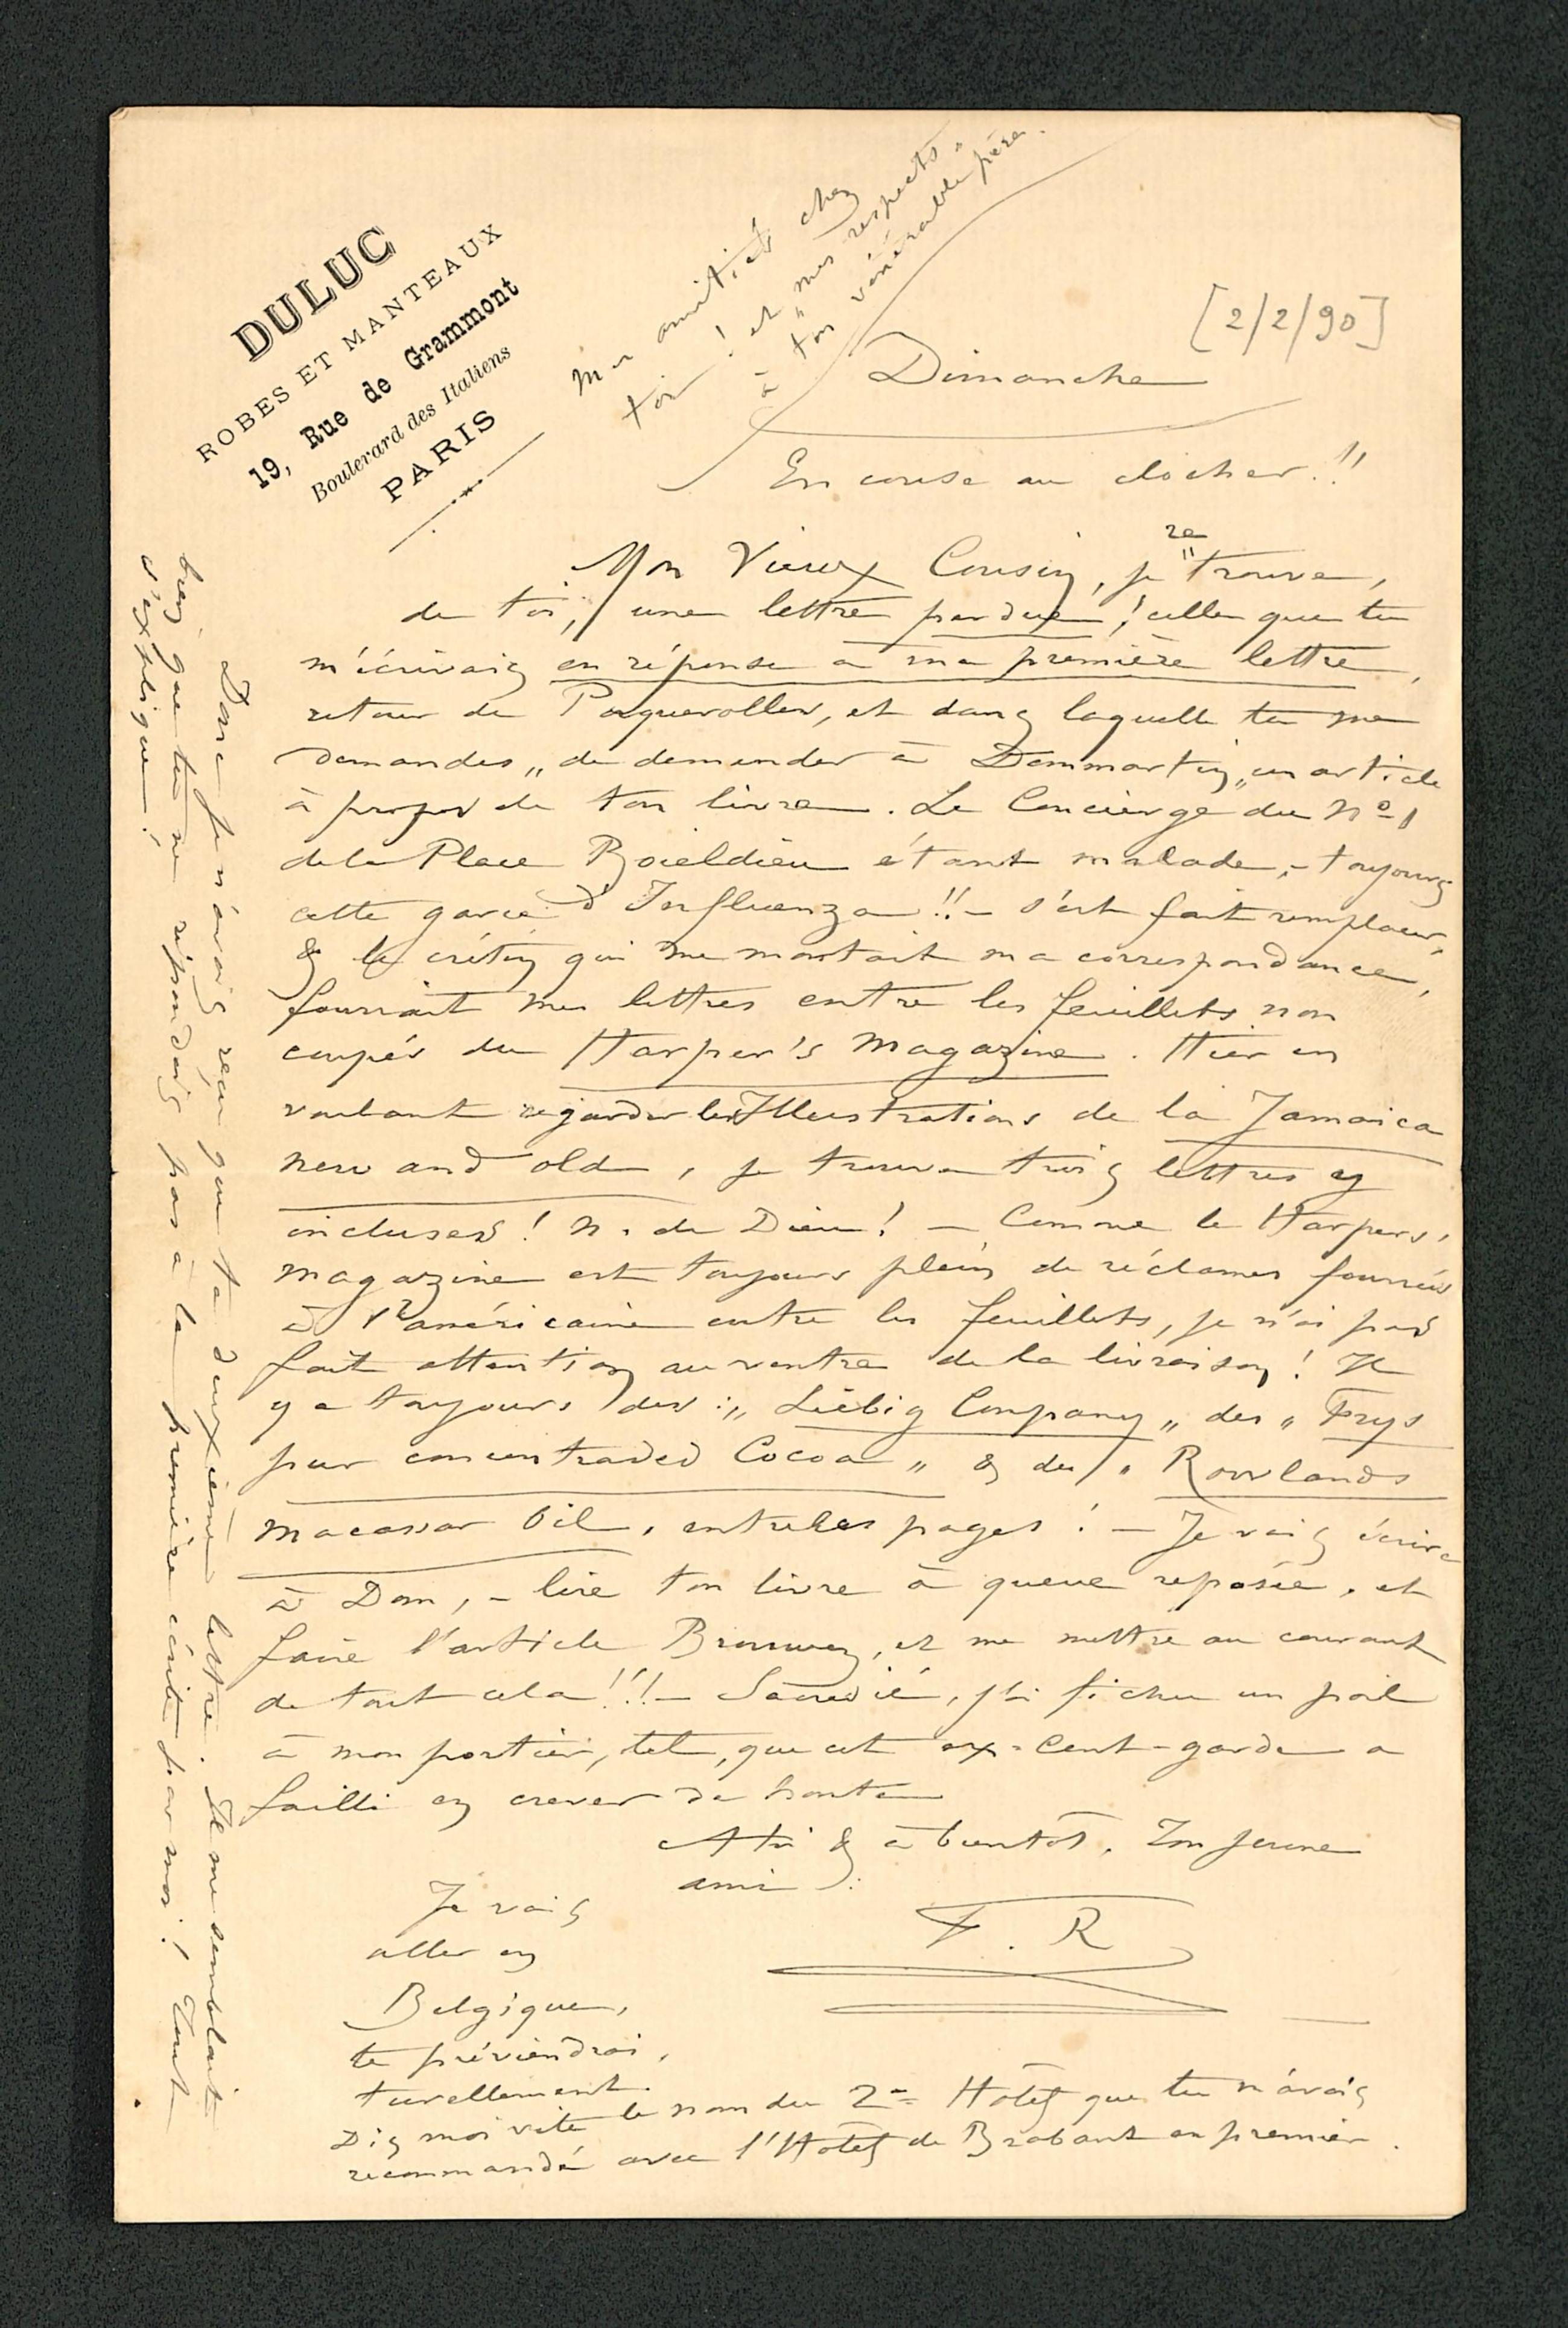 DULUC
ROBES ET MANTEAUX
19, Rue de Grammont
Boulevard des Italiens
PARIS
Mes amitiés chez
toi ! et "mes respects"
à ton vénérable père.
[2/2/90]
Dimanche
En course au clocher !!
Mon Vieux Cousin, je re"trouve,
de toi, une lettre perdue ! celle que tu
m'écrivais en réponse à ma première lettre,
retour de Porquerolles, et dans laquelle tu me
demandes „de demander à Dommartin„ un article
à propos de ton livre. Le Concierge du No 1
de la Place Boieldieu étant malade, - toujours
cette garce d'Influenza !! – s'est fait remplacer,
& le crétin qui me montait ma correspondance,
fourrait mes lettres entre les feuillets non
coupés du Harper's Magazine. Hier en
voulant regarder les Illustrations de la Jamaica
new and old, je trouve trois lettres y
incluses ! N. de Dieu ! – Comme le Harpers,
magazine est toujours plein de réclames fourrées
à l'américaine entre les feuillets, je n'ai pas
fait attention au ventre de la livraison ! Il
y a toujours des : „ Liebig Company „ des „ Frys
pur concentraded Cocoa „ & des „ Rowlands
macassar Oil, entre les pages ! – Je vais écrire
à Dom, – lire ton livre à queue reposée, et
faire l'article Brouwez, et me mettre au courant
de tout cela !!! – Sacredié, j'ai fichu un poil
à mon portier, tel, que cet ex-Cent-garde a
failli en crever de honte
A toi & à bientôt. Ton jeune
ami :
F. R
Je vais
aller en
Belgique,
te préviendrai,
turellement.
Dis moi vite le nom du 2e Hôtel que tu m'avais
recommandé avec l'Hôtel de Brabant en premier.
Donc je n'avais reçu que ta deuxième lettre. Il me semblait
bien que tu ne répondais pas à la première écrite par moi ! Tout
s'explique !